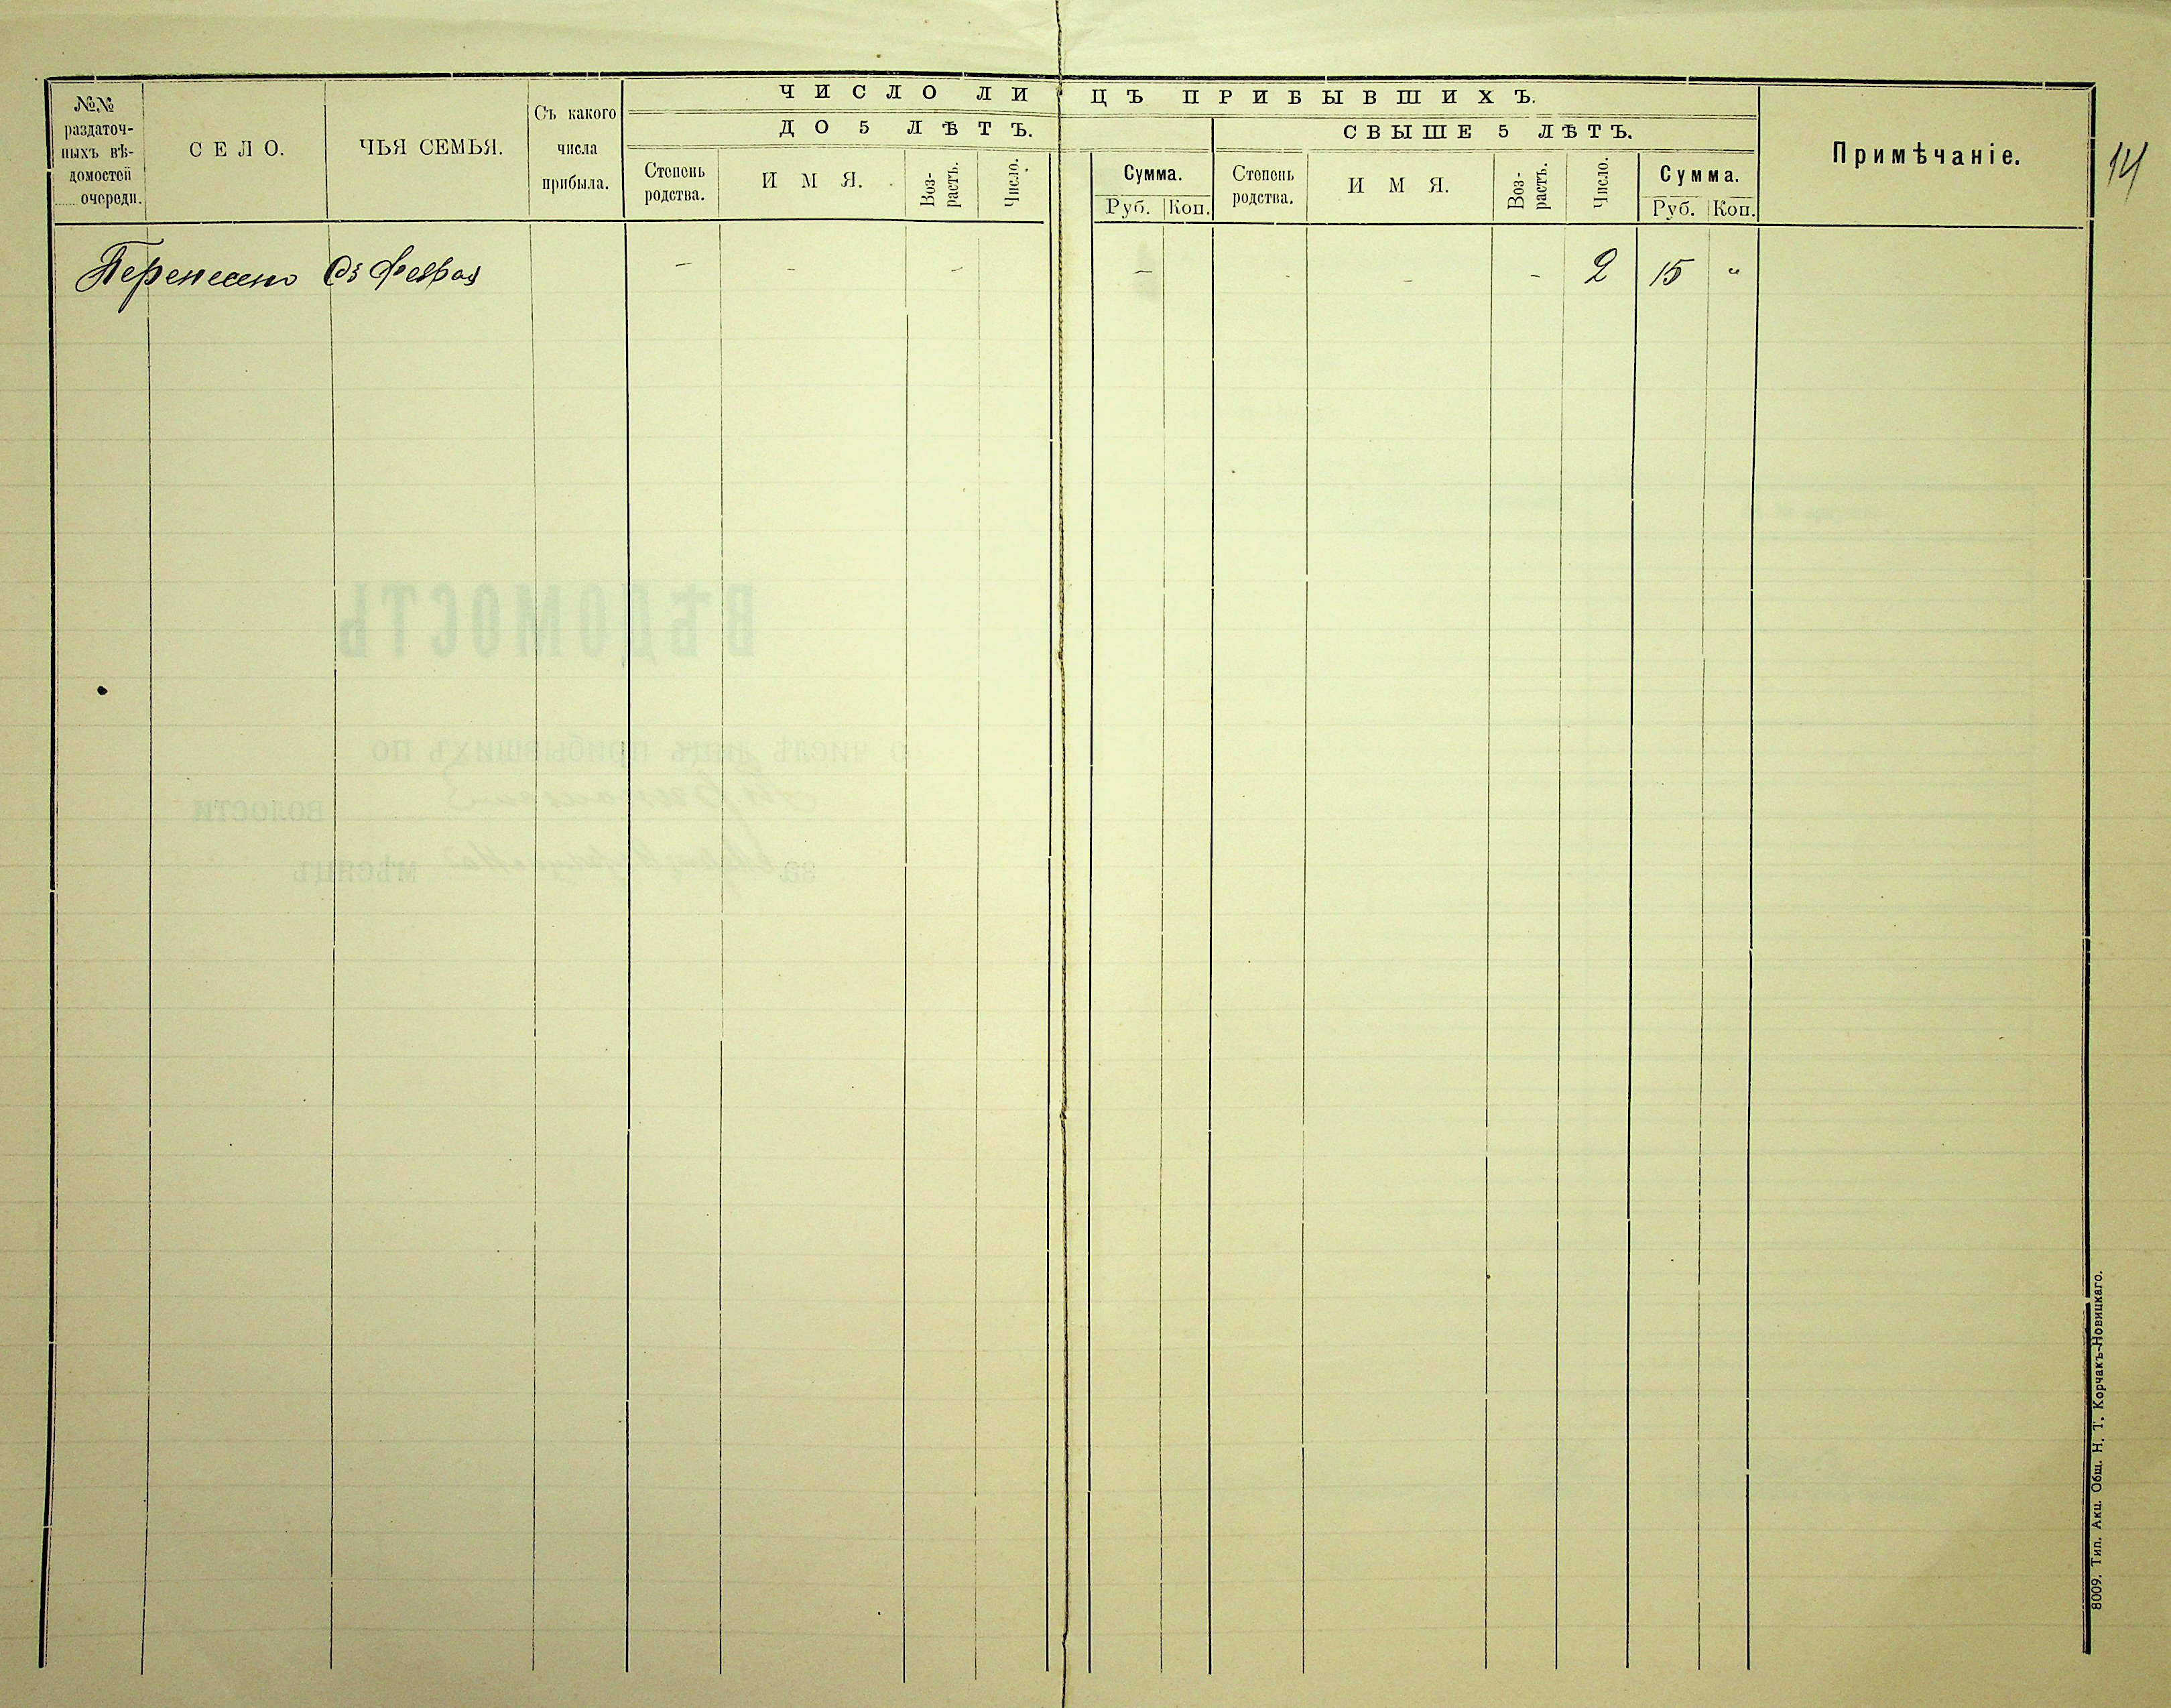 №№ раздаточ-
ныхъ вѣ-
домостей
...... очереди.
СЕЛО.
ЧЬЯ СЕМЬЯ.
Съ какого
числа
прибыла.
ЧИСЛО ЛИЦЪ ПРИБЫВШИХЪ.
ДО 5 ЛѢТЪ.
Степень
родства.
ИМЯ.
Воз-
растъ.
Число.
Сумма.
Руб. Коп.
СВЫШЕ 5 ЛѢТЪ.
Степень
родства.
ИМЯ.
Воз-
растъ.
Число.
Сумма.
Руб. Коп.
Примѣчаніе.
14
Перенесено Съ - - - - - - - 2 15 "
ВѢДОМОСТЬ
о числѣ лицъ прибывшихъ по
волости
за мѣсяцъ
8009. Тип. Акц. Общ. Н. Т. Корчакъ-Новицкаго.